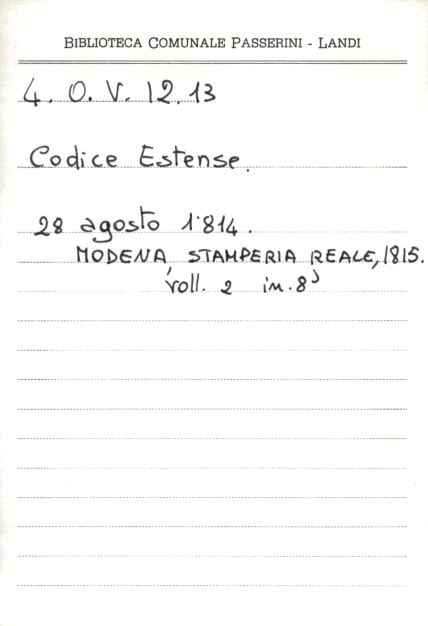 BIBLIOTECA COMUNALE PASSERINI - LANDI
4. O. V. 12.13
Codice Estense.
28 agosto 1814.
MODENA, STAMPERIA REALE, 1815.
voll. 2 in. 8°